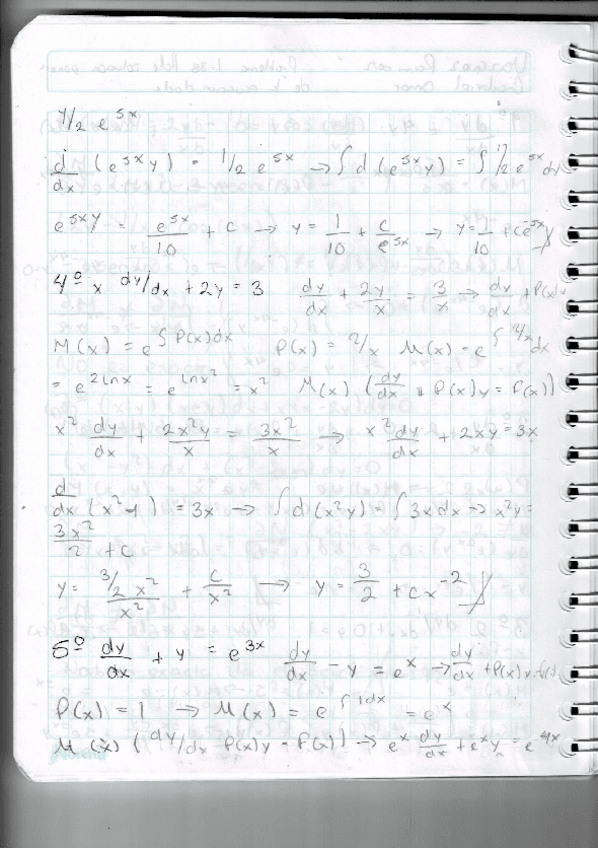 1/2 e^5x
d/dx (e^5x y) = 1/2 e^5x → ∫ d (e^5x y) = ∫ 1/2 e^5x dy
e^5x y = e^5x/10 + c → y = 1/10 + c/e^5x → y = 1/10 + ce^-5x
4º x dy/dx + 2y = 3 dy/dx + 2y/x = 3/x → dy/dx + P(x)y
M(x) = e^∫P(x)dx P(x) = 2/x M(x) = e^∫2/x dx
= e^2lnx = e^lnx² = x² M(x) (dy/dx + P(x)y = f(x))
x² dy/dx + 2x²y/x = 3x²/x → x² dy/dx + 2xy = 3x
d/dx (x² y) = 3x → ∫ d(x²y) = ∫ 3x dx → x²y =
3x²/2 + c
y = 3/2 x²/x² + c/x² → y = 3/2 + cx^-2
5º dy/dx + y = e^3x dy/dx - y = e^x → dy/dx + P(x)y = f(x)
P(x) = 1 → M(x) = e^∫1dx = e^x
M(x) (dy/dx P(x)y = f(x)) → e^x dy/dx + e^x y = e^4x